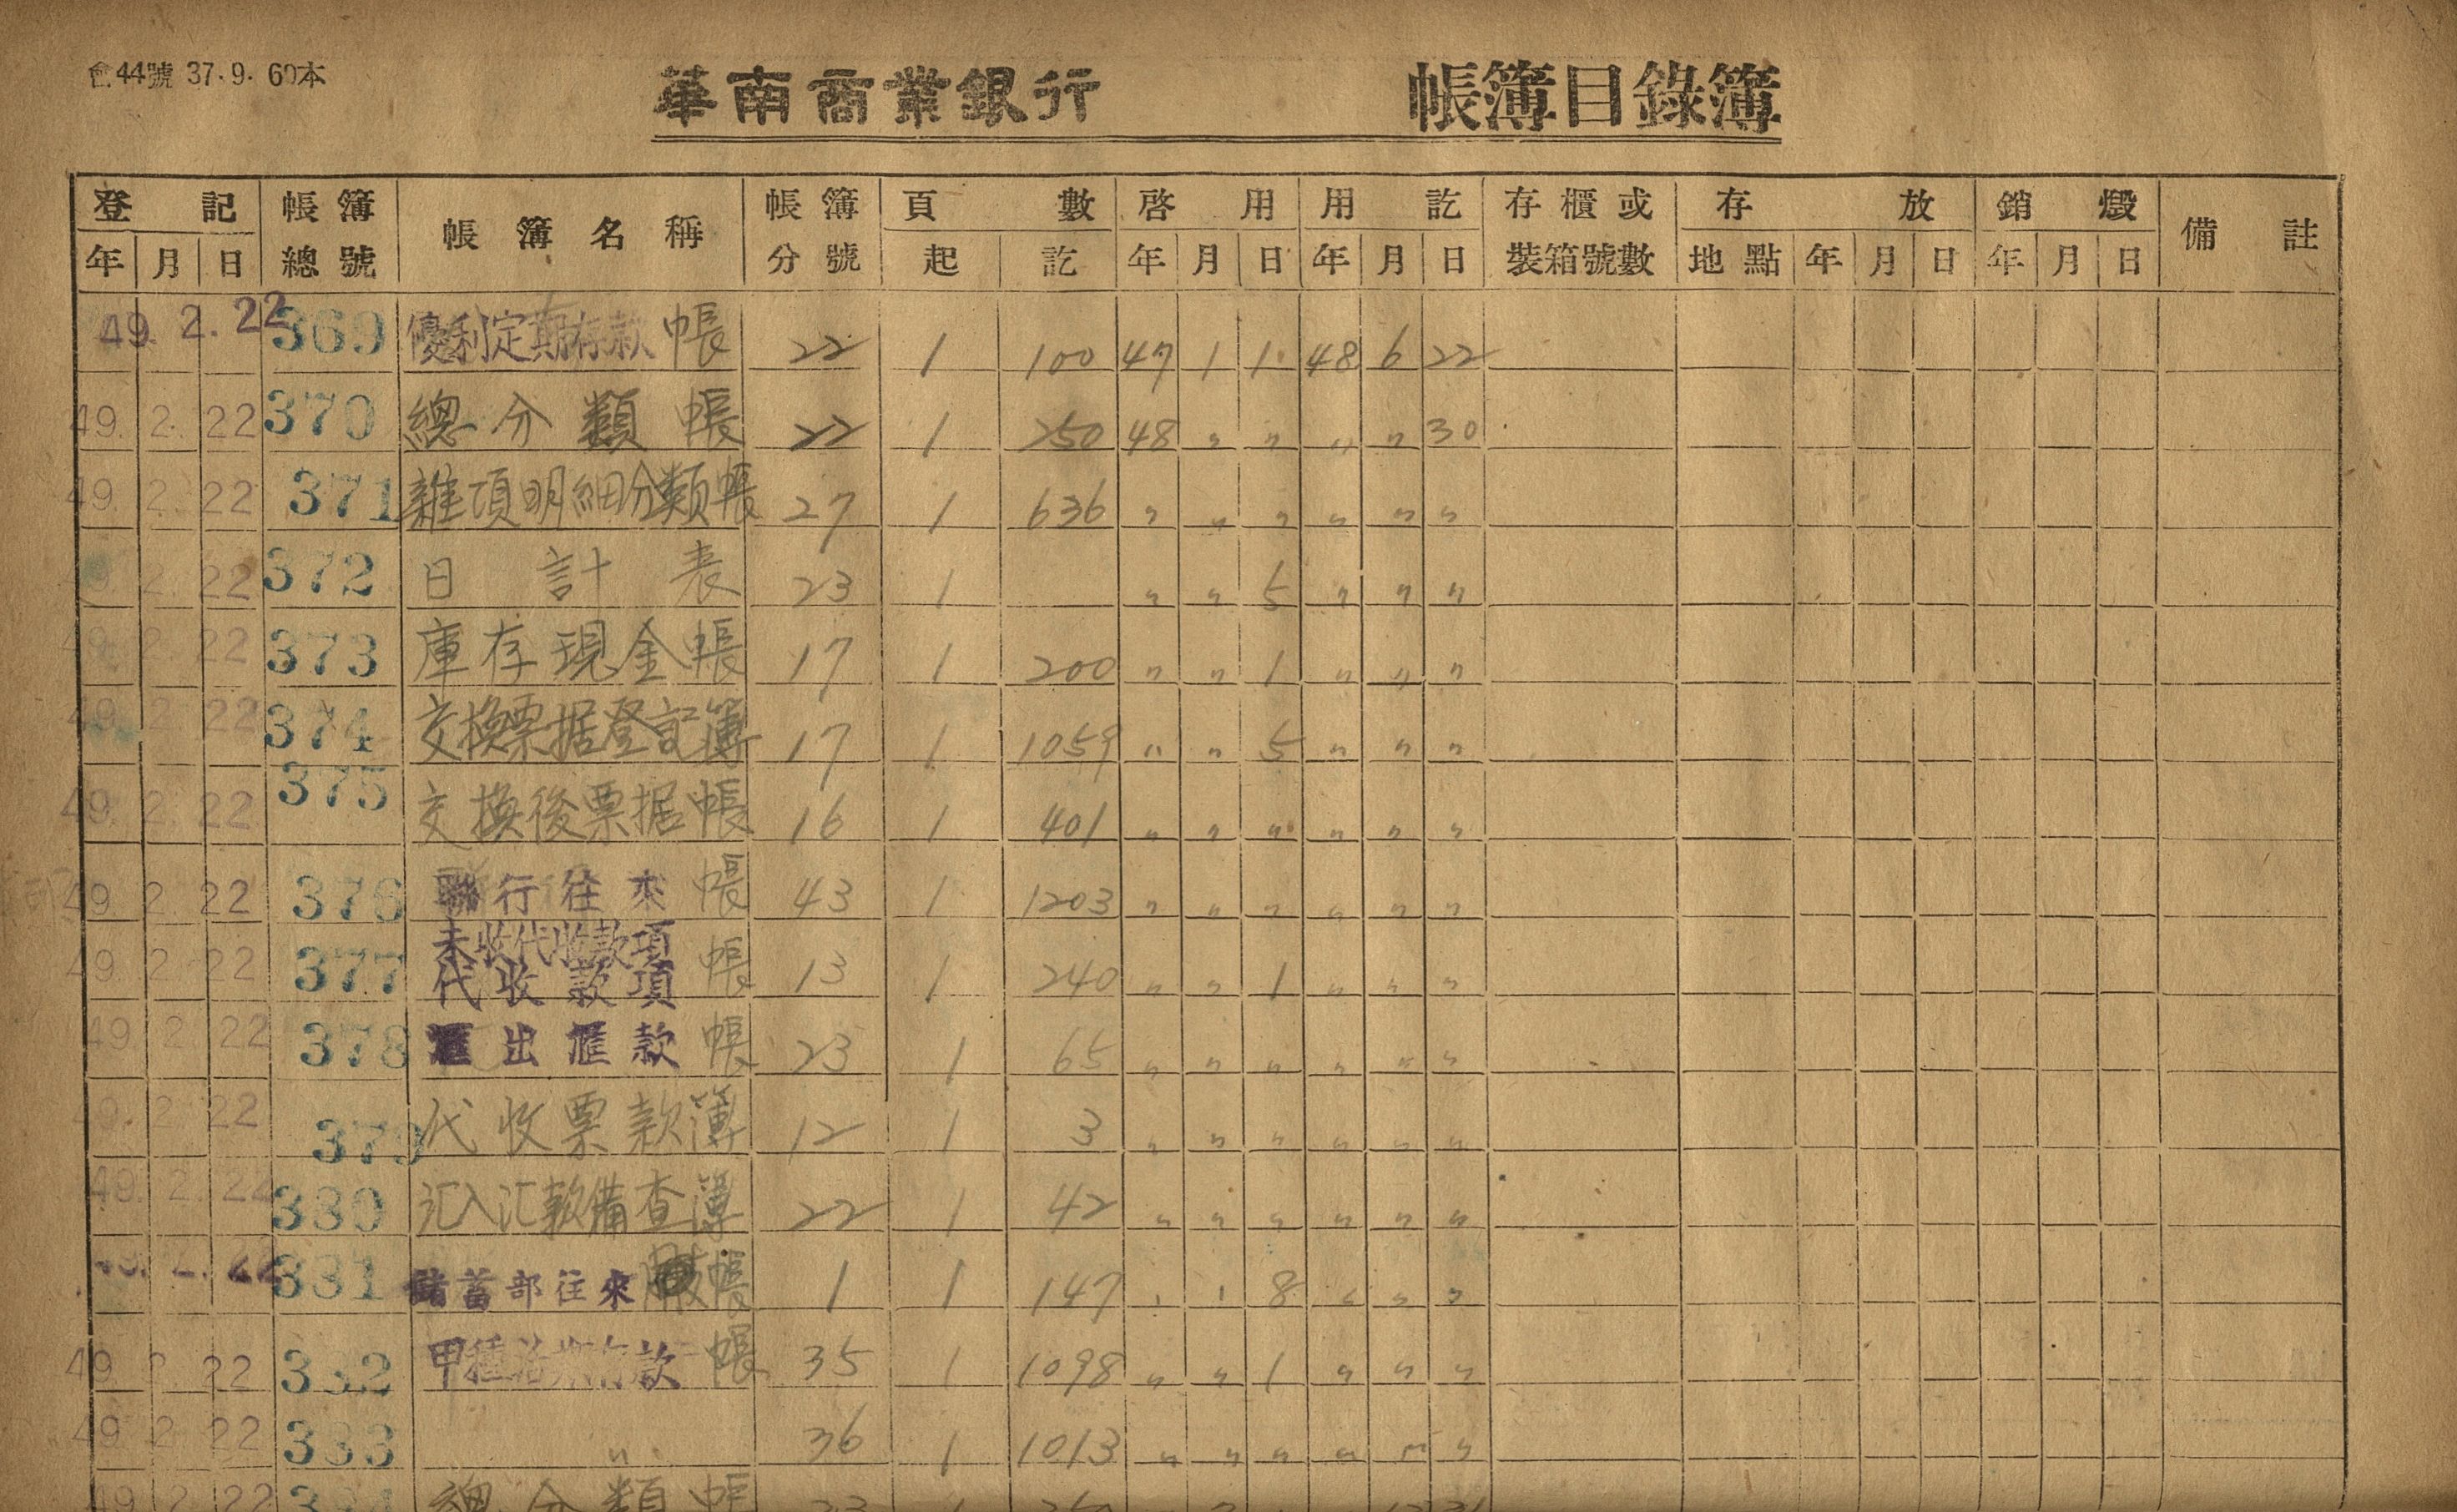 會44號 37.9. 60本
華南商業銀行 帳簿目錄簿
登記 帳簿 帳簿名稱 帳簿 頁數 啓用 用訖 存櫃或 存放 銷燬 備註
年 月 日 總號 分號 起 訖 年 月 日 年 月 日 裝箱號數 地點 年 月 日 年 月 日
49. 2. 22 369 優利定期存款帳 22 1 100 47 1 1 48 6 22
49. 2. 22 370 總分類帳 22 1 250 48 〃 〃 〃 〃 30
49. 2. 22 371 雜項明細分類帳 27 1 636 〃 〃 〃 〃 〃 〃
49. 2. 22 372 日計表 23 1 〃 〃 5 〃 〃 〃
49. 2. 22 373 庫存現金帳 17 1 200 〃 〃 1 〃 〃 〃
49. 2. 22 374 交換票据登記簿 17 1 1059 〃 〃 5 〃 〃 〃
49. 2. 22 375 交換後票据帳 16 1 401 〃 〃 〃 〃 〃 〃
49. 2. 22 376 聯行往來帳 43 1 1203 〃 〃 〃 〃 〃 〃
未收代收款項
49. 2. 22 377 代收款項帳 13 1 240 〃 〃 1 〃 〃 〃
49. 2. 22 378 匯出匯款帳 23 1 65 〃 〃 〃 〃 〃 〃
49. 2. 22 379 代收票款簿 12 1 3 〃 〃 〃 〃 〃 〃
49. 2. 22 380 汇入汇款備查簿 22 1 42 〃 〃 〃 〃 〃 〃
49. 2. 22 381 儲蓄部往來帳 1 1 147 〃 〃 8 〃 〃 〃
49. 2. 22 382 甲種活期存款帳 35 1 1098 〃 〃 1 〃 〃 〃
49. 2. 22 383 〃 36 1 1013 〃 〃 〃 〃 〃 〃
49. 2. 22 384 總分類帳